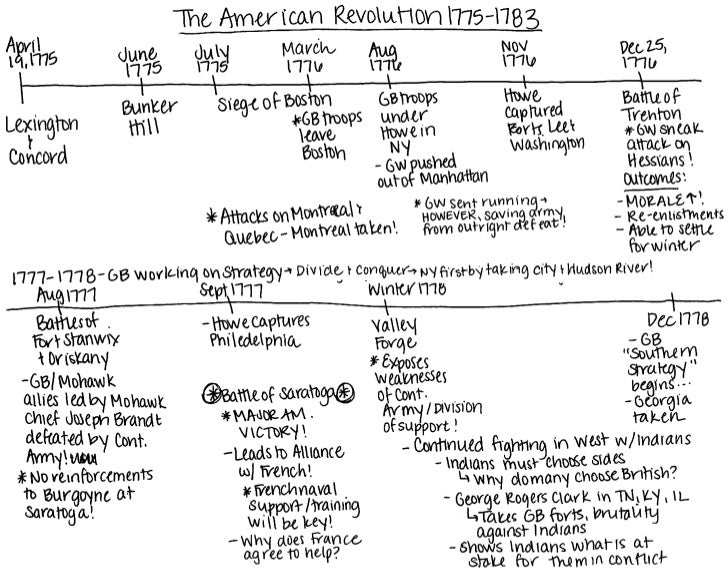 The American Revolution 1775-1783
April
19, 1775
June
1775
July
1775
March
1776
Aug
1776
Nov
1776
Dec 25,
1776
Lexington
+
Concord
Bunker
Hill
Siege of Boston
*GB troops
leave
Boston
GB troops
under
Howe in
NY
- GW pushed
out of Manhattan
Howe
captured
Forts Lee +
Washington
Battle of
Trenton
* GW sneak
attack on
Hessians!
outcomes:
- MORALE↑!
- Re-enlistments
- Able to settle
for winter
*Attacks on Montreal +
Quebec - Montreal taken!
* GW sent running →
HOWEVER, saving army
from outright defeat!
1777-1778 - GB working on strategy → Divide + Conquer → NY first by taking city + Hudson River!
Aug 1777
Sept 1777
Winter 1778
Dec 1778
Battles of
Fort Stanwix
+ Oriskany
- GB/Mohawk
allies led by Mohawk
chief Joseph Brandt
defeated by Cont.
Army!
* No reinforcements
to Burgoyne at
Saratoga!
- Howe captures
Philedelphia
*Battle of Saratoga*
* MAJOR AM.
VICTORY!
- Leads to Alliance
w/ French!
* French naval
support/training
will be key!
- Why does France
agree to help?
Valley
Forge
* Exposes
weaknesses
of Cont.
Army/Division
of support!
- GB
"Southern
Strategy"
begins...
- Georgia
taken
- Continued fighting in West w/Indians
- Indians must choose sides
↳ Why do many choose British?
- George Rogers Clark in TN, KY, IL
↳ Takes GB forts, brutality
against Indians
- Shows Indians what is at
stake for them in conflict